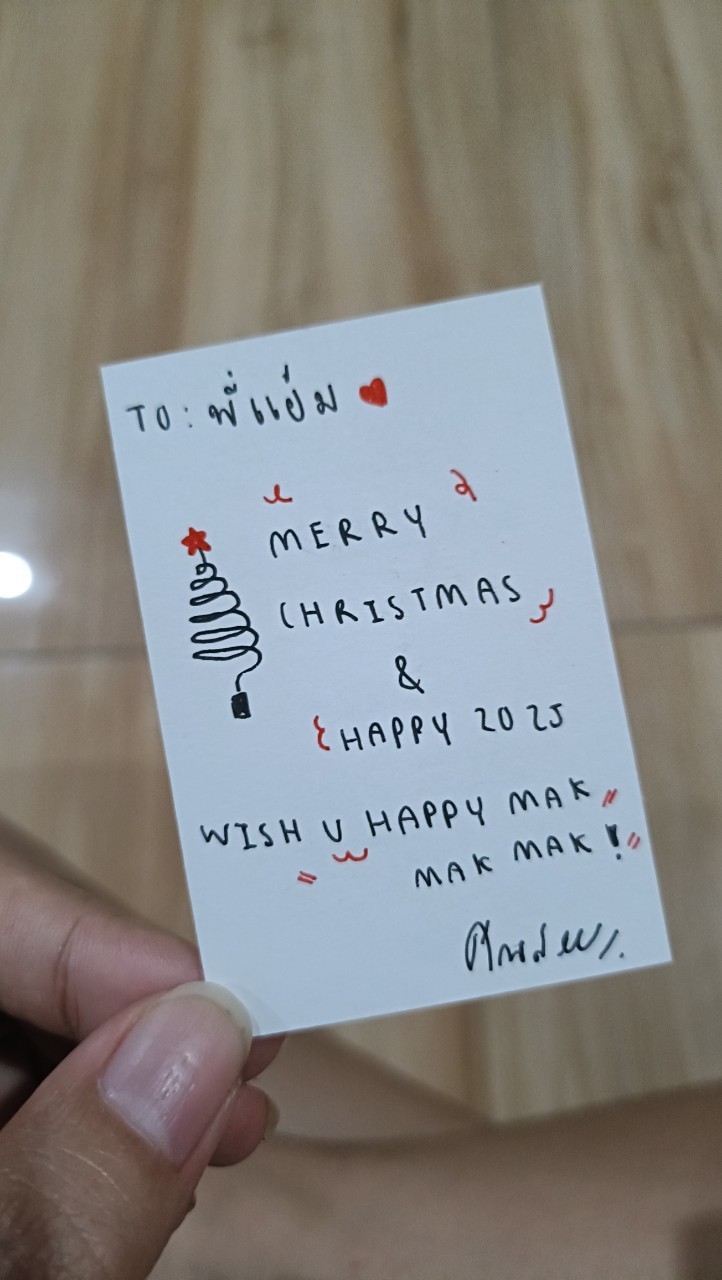 TO: พี่แย่ม
MERRY
CHRISTMAS
&
HAPPY 2025
WISH U HAPPY MAK
MAK MAK!